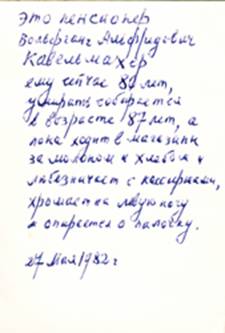 Это пенсионер
Вольфганг Альфридович
Кавельмахер
ему сейчас 80 лет,
умирать собирается
в возрасте 87 лет, а
пока ходит в магазины
за молоком и хлебом и
любезничает с кассиршами,
хромает на левую ногу
и опирается о палочку.
27 Мая 1982 г